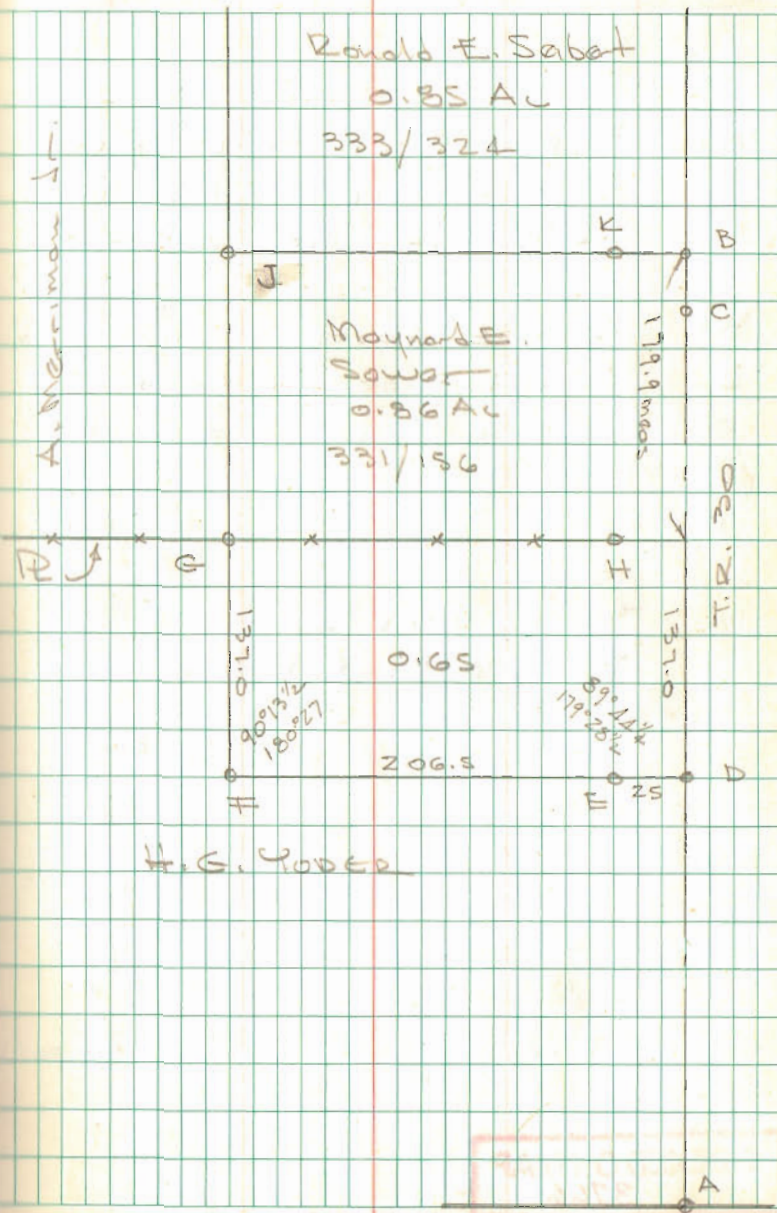 Ronald E. Sabat
0.85 Ac
333/324
A. Merriman Jr.
K
B
J
C
Maynard E.
Sowar
0.86 Ac
331/156
179.9 meas
T.R. 30
PL
G
H
137.0
0.65
137.0
90°13½
180°27
89°44¼
179°28½
206.5
F
E
25
D
H.G. YODER
A